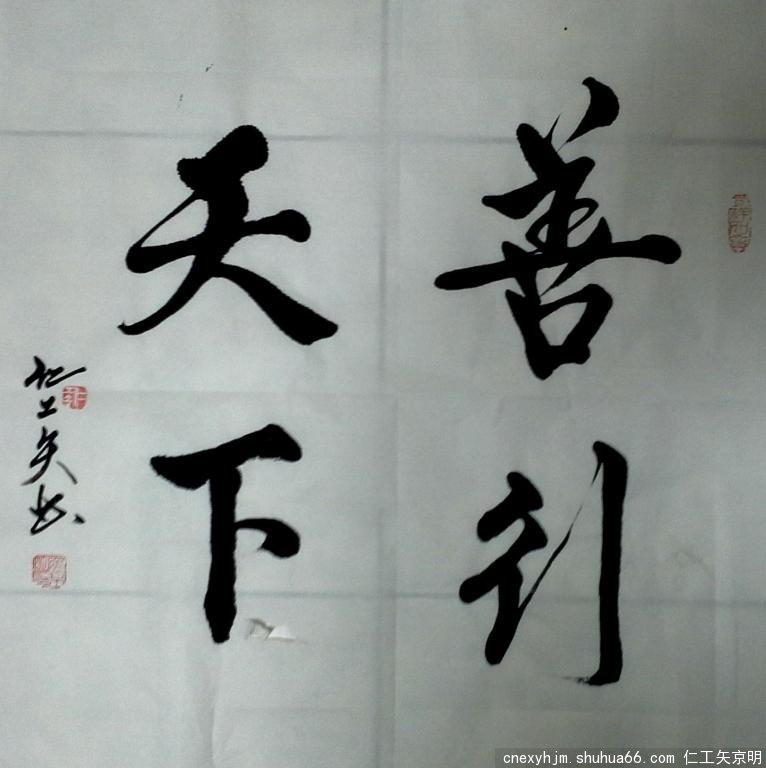 善行
天下
仁工矢书
cnexyhjm.shuhua66.com 仁工矢京明